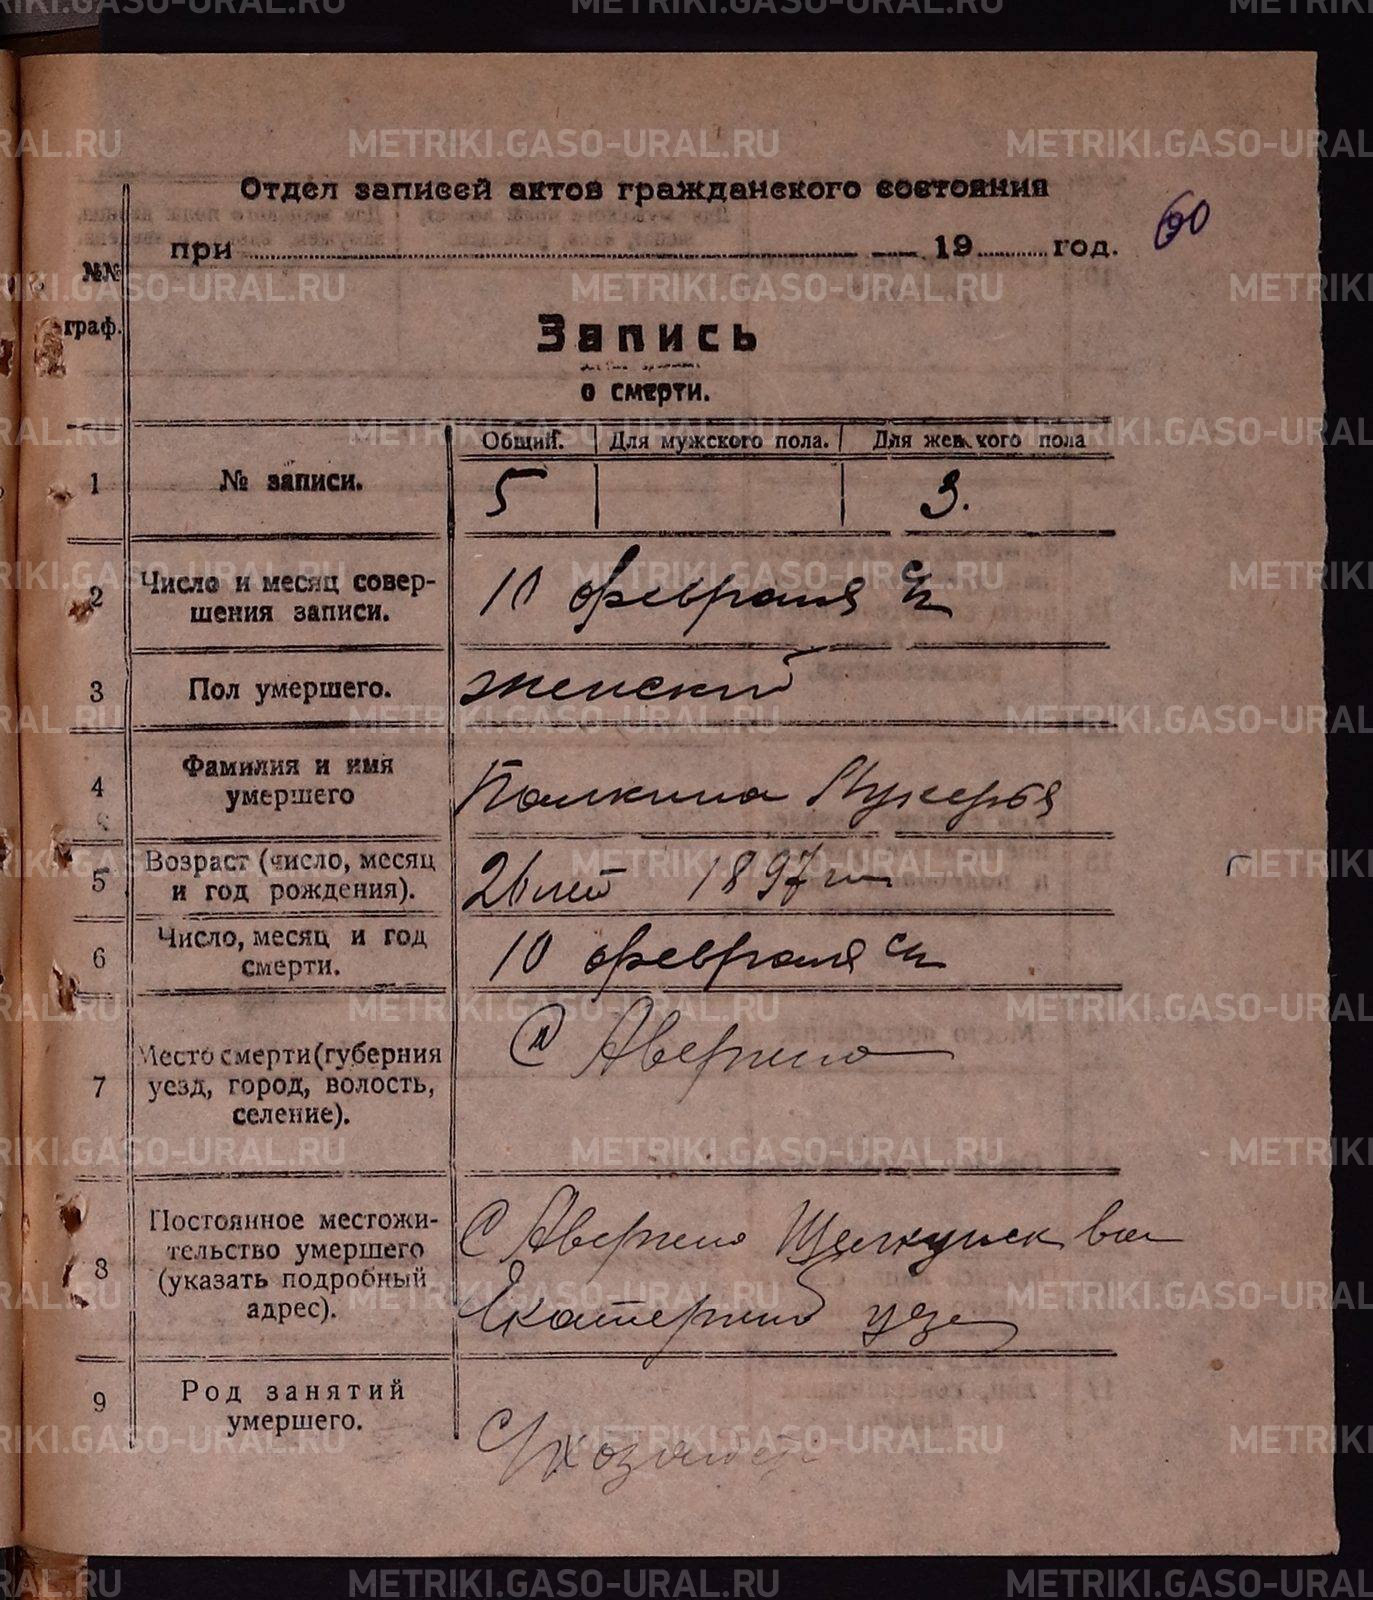 METRIKI.GASO-URAL.RU
Отдел записей актов гражданского состояния
при 19 год.
90
№№
граф.
Запись
о смерти.
Общий. Для мужского пола. Для женского пола
1 № записи. 5 3.
2 Число и месяц совер-
шения записи. 10 февраля с/г
3 Пол умершего. Женский
4 Фамилия и имя
умершего Палкина Лукерья
5 Возраст (число, месяц
и год рождения). 26 лет 1897 г
6 Число, месяц и год
смерти. 10 февраля с/г
7 Место смерти (губерния
уезд, город, волость,
селение). С Аверино
8 Постоянное местожи-
тельство умершего
(указать подробный
адрес). С Аверино Щелкунск вол
Екатеринб уез
9 Род занятий
умершего.
С/хозяйст